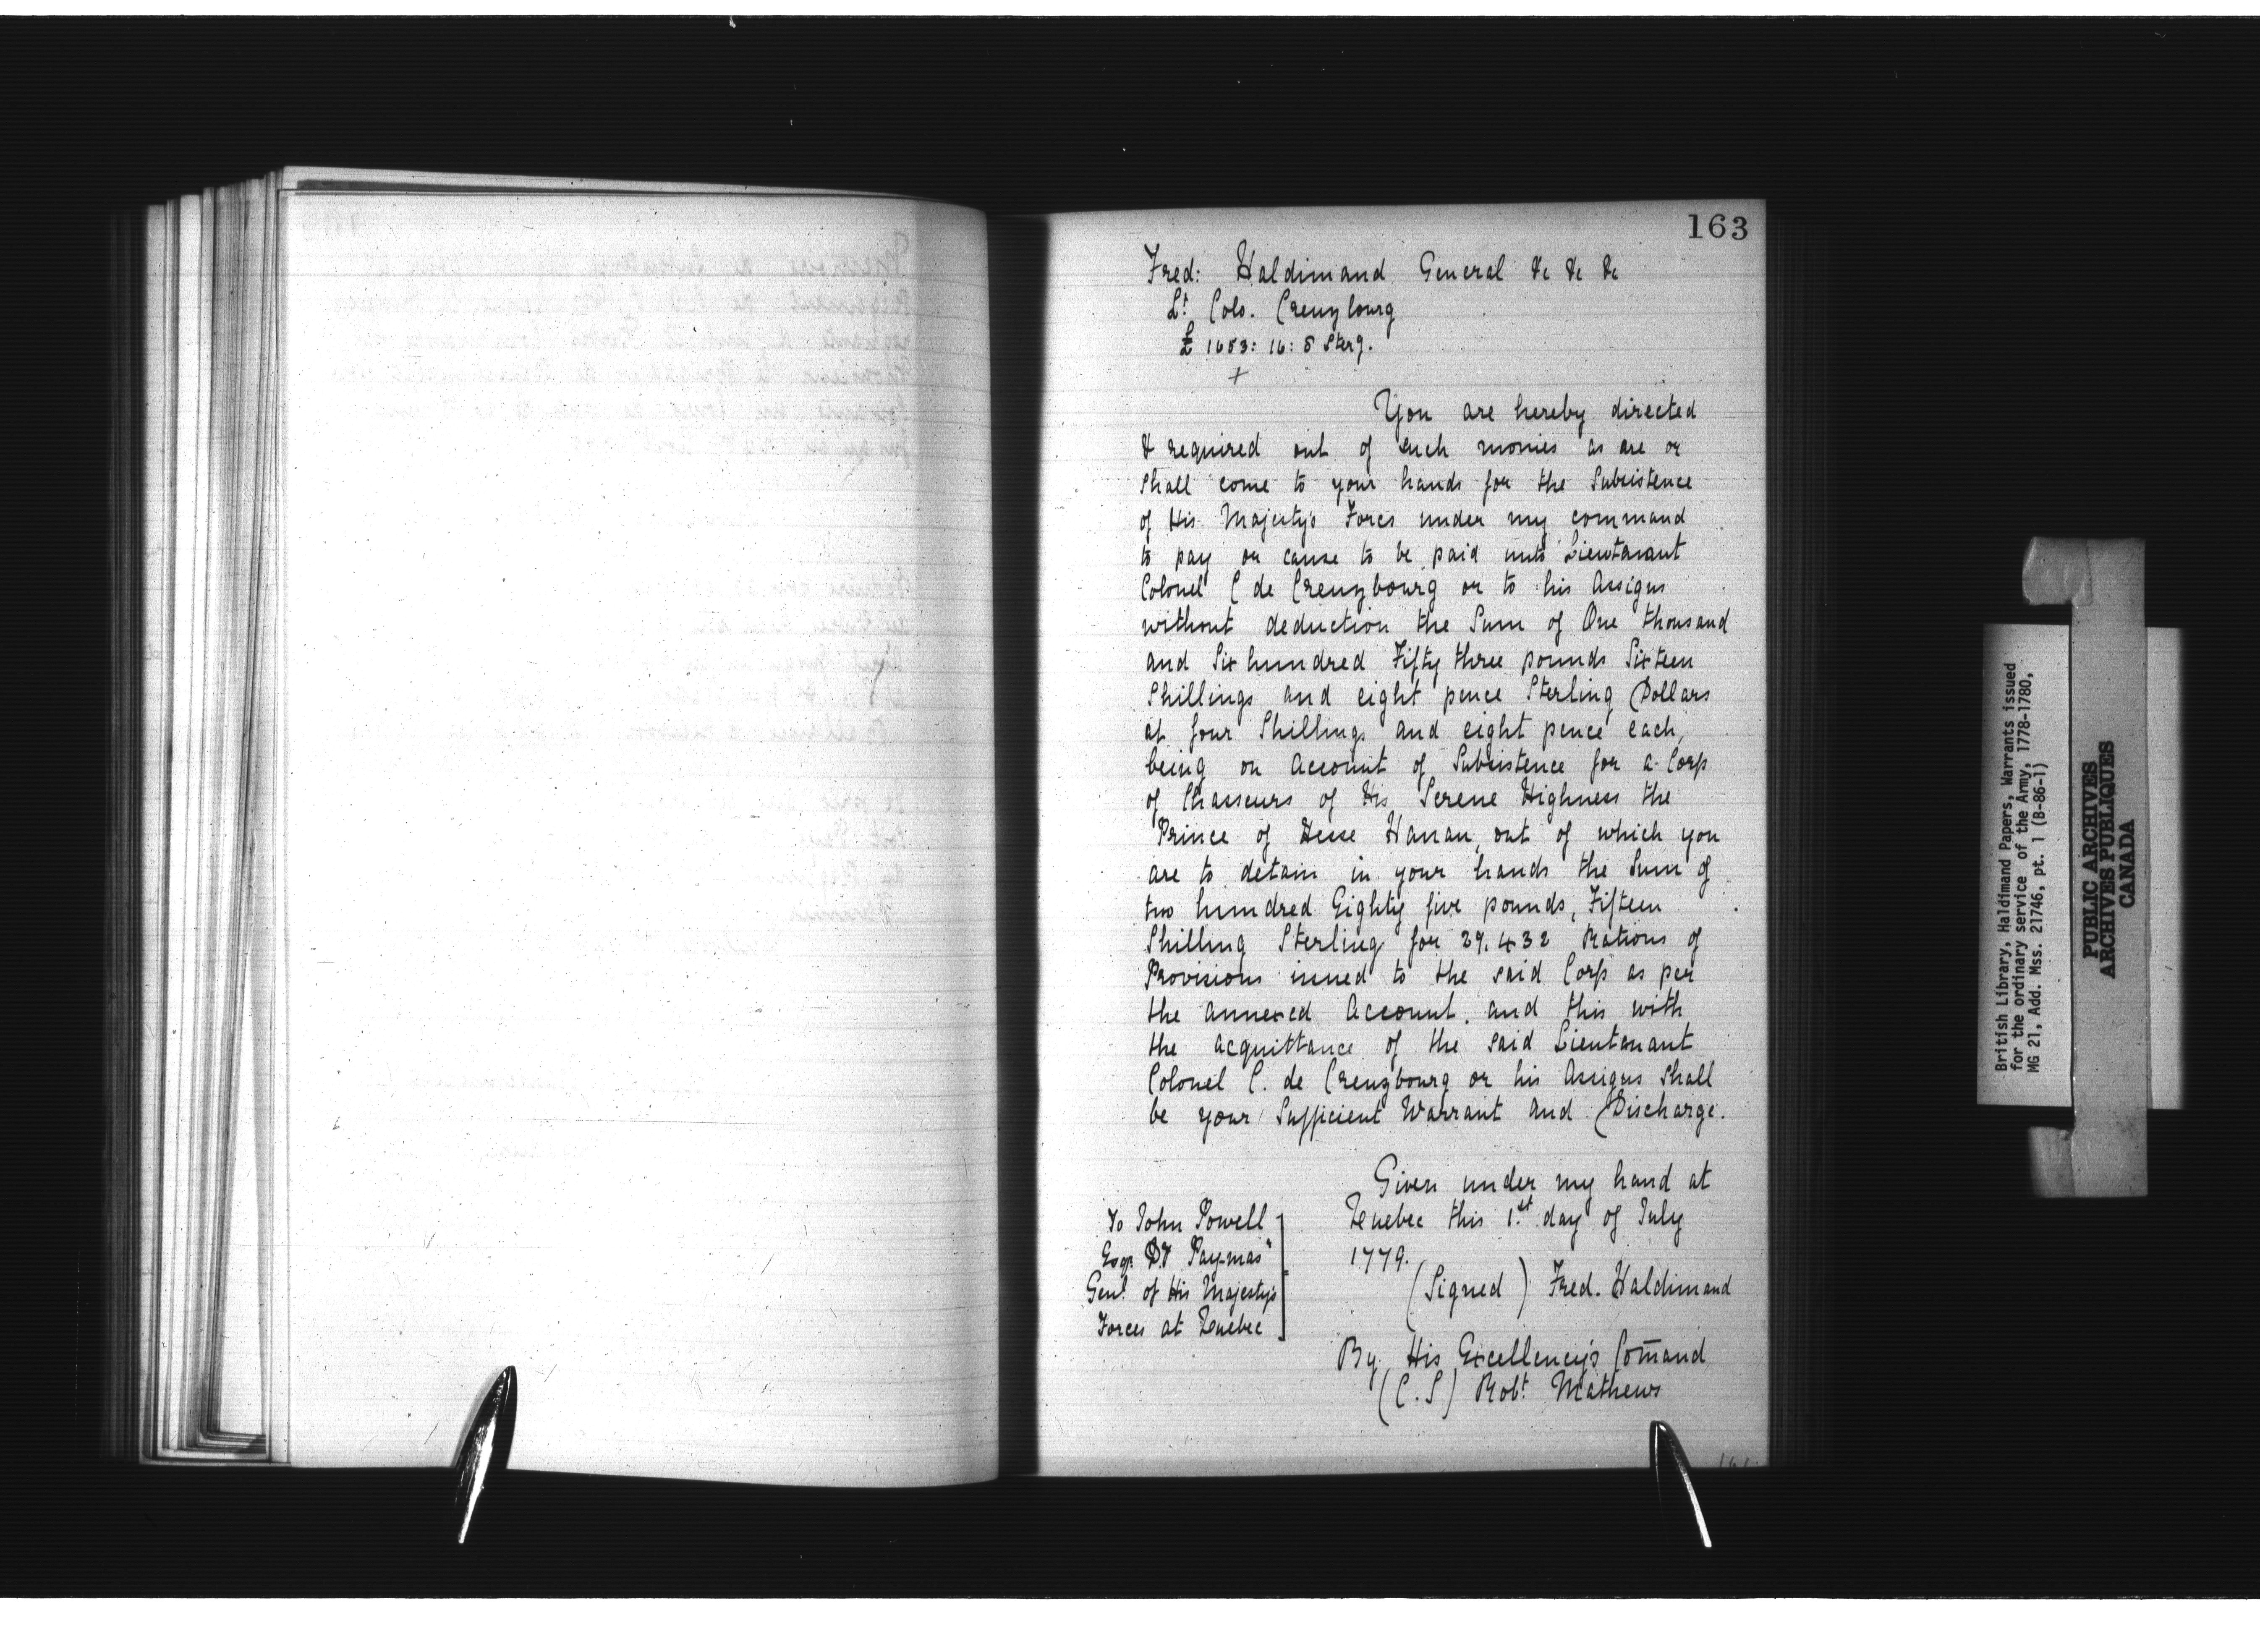 163
Fred: Haldimand General &c &c &c
Lt Colo. Creuzbourg
£ 1653: 16: 8 Sterg.
+
You are hereby directed
& required out of such monies as are or
shall come to your hands for the Subsistence
of His Majesty's Forces under my command
to pay or cause to be paid unto Lieutanant
Colonel C de Creuzbourg or to his Assigns
without deduction the Sum of One thousand
and Six hundred Fifty three pounds Sixteen
Shillings and eight pence Sterling Dollars
at four Shillings and eight pence each,
being on Account of Subsistence for a Corps
of Chasseurs of His Serene Highness the
Prince of Hesse Hanau, out of which you
are to detain in your hands the Sum of
two hundred Eighty five pounds, Fifteen
Shilling Sterling for 29.432 Rations of
Provisions issued to the said Corps as per
the annexed Account. and this with
the acquittance of the said Lieutanant
Colonel C. de Creuzbourg or his Assigns shall
be your Sufficient Warrant and Discharge.
Given under my hand at
Quebec this 1.st day of July
1779.
To John Powell
Esqr. Dy Paymas"
Genl. of His Majesty's
Forces at Quebec
(Signed) Fred. Haldimand
By His Excellency's Com̄and
(C.S) Robt. Mathews
British Library, Haldimand Papers, Warrants issued
for the ordinary service of the Army, 1778-1780,
MG 21, Add. Mss. 21746, pt. 1 (B-86-1)
PUBLIC ARCHIVES
ARCHIVES PUBLIQUES
CANADA